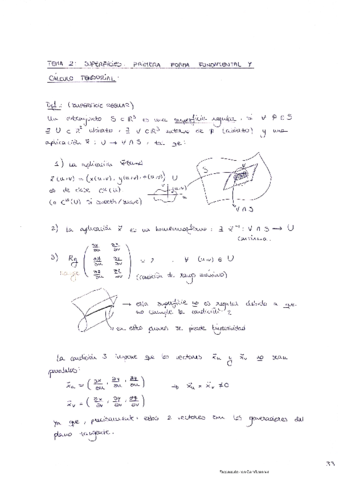 TEMA 2: SUPERFICIES. PRIMERA FORMA FUNDAMENTAL Y
CÁLCULO TENSORIAL:
Def = (SUPERFICIE REGULAR)
Un subconjunto S ⊂ R³ es una superficie regular si ∀ P ∈ S
∃ U ⊂ R² abierto, ∃ V ⊂ R³ entorno de P (abierto) y una
aplicación x̄ : U → V ∩ S, tal que:
1) La aplicación
x̄(u,v) = (x(u,v), y(u,v), z(u,v))
es de clase
(u,v)
S
V ∩ S
2) La aplicación x̄ es un homeomorfismo: ∃ x̄⁻¹ : V ∩ S → U
continua.
3) Rg ( ∂x/∂u ∂x/∂v
∂y/∂u ∂y/∂v
∂z/∂u ∂z/∂v ) = 2 ∀ (u,v) ∈ U
rango
(condición de rango máximo)
esta superficie no es regular debido a que
no cumple la condición
en este punto se pierde
La condición 3 impone que los vectores x̄u y x̄v no sean
paralelos:
x̄u = ( ∂x/∂u , ∂y/∂u , ∂z/∂u )
⇒ x̄u × x̄v ≠ 0
x̄v = ( ∂x/∂v , ∂y/∂v , ∂z/∂v )
ya que, precisamente, estos 2 vectores son los generadores del
plano tangente.